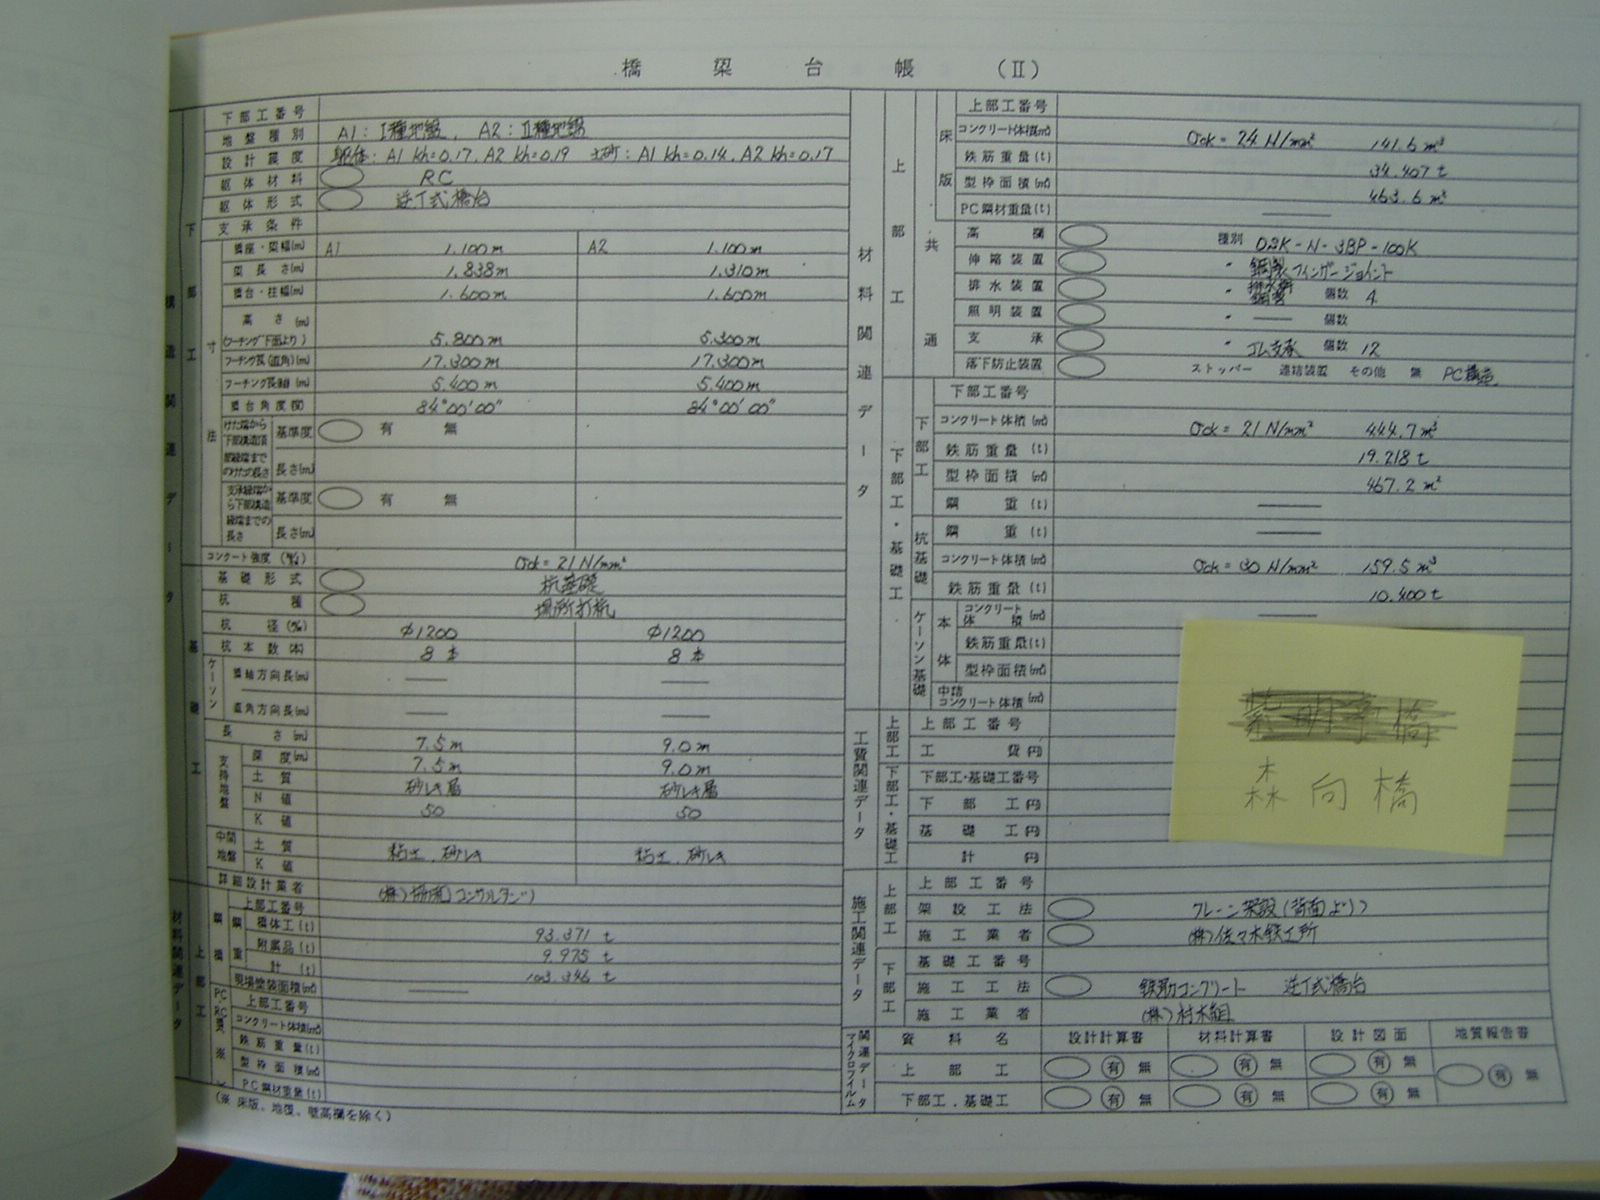 橋梁台帳 (Ⅱ)
下部工番号
地盤種別 A1: Ⅰ種地盤, A2: Ⅱ種地盤
設計震度 躯体: A1 kh=0.17, A2 kh=0.19 土砂: A1 kh=0.14, A2 kh=0.17
躯体材料 RC
躯体形式 逆T式橋台
支承条件
橋座・梁幅(m) A1 1.100m A2 1.100m
梁長さ(m) 1.838m 1.310m
橋台・柱幅(m) 1.600m 1.600m
高さ(m)
(フーチング下面より) 5.800m 5.300m
フーチング長(直角)(m) 17.300m 17.300m
フーチング長(m) 5.400m 5.400m
橋台角度(度) 84°00'00" 84°00'00"
けた端から下部構造頂部縁端までのけたの長さ 基準度 有 無
長さ(m)
支承縁端から下部構造縁端までの長さ 基準度 有 無
長さ(m)
コンクート強度 σck=21N/mm²
基礎形式 杭基礎
杭種 場所打杭
杭径(%) φ1200 φ1200
杭本数(本) 8本 8本
ケーソン 橋軸方向長(m) — —
直角方向長(m) — —
長さ(m) 7.5m 9.0m
支持地盤 深度(m) 7.5m 9.0m
土質 砂レキ層 砂レキ層
N値 50 50
K値
中間地盤 土質 粘土,砂レキ 粘土,砂レキ
K値
詳細設計業者 (株) コンサルタンツ
上部工番号
鋼橋 鋼重 橋体工(t) 93.371 t
附属品(t) 9.975 t
計(t) 103.346 t
現場塗装面積(㎡) —
上部工番号
コンクリート体積(㎥)
鉄筋重量(t)
型枠面積(㎡)
PC鋼材重量(t)
(※床版、地覆、壁高欄を除く)
構造関連データ
下部工
寸法
基礎工
材料関連データ
上部工
材料関連データ
上部工
床版
上部工番号
コンクリート体積(㎥) σck=24N/mm² 141.6m³
鉄筋重量(t) 34.407t
型枠面積(㎡) 463.6m²
PC鋼材重量(t) —
共通
高欄 種別 DSK-N-3BP-100K
伸縮装置 〃 鋼製フィンガージョイント
排水装置 〃 個数 4
照明装置 〃 — 個数
支承 〃 ゴム支承 個数 12
落下防止装置 ストッパー 連結装置 その他 無 PC構造
下部工・基礎工
下部工
下部工番号
コンクリート体積(㎥) σck=21N/mm² 444.7m³
鉄筋重量(t) 19.218t
型枠面積(㎡) 467.2m²
鋼重(t) —
杭基礎
鋼重(t) —
コンクリート体積(㎥) σck=30N/mm² 159.5m³
鉄筋重量(t) 10.400t
ケーソン基礎
本体
コンクリート体積(㎥) —
鉄筋重量(t)
型枠面積(㎡)
中詰コンクリート体積(㎥)
橋
森向橋
工費関連データ
上部工
上部工番号
工費円
下部工・基礎工
下部工・基礎工番号
下部工円
基礎工円
計円
施工関連データ
上部工
上部工番号
架設工法 クレーン架設(背面より)
施工業者 (株)佐々木鉄工所
下部工
基礎工番号
施工工法 鉄筋コンクリート 逆T式橋台
施工業者 (株)村木組
関連データ
マイクロフイルム
資料名 設計計算書 材料計算書 設計図面 地質報告書
上部工 有 無 有 無 有 無 有 無
下部工,基礎工 有 無 有 無 有 無